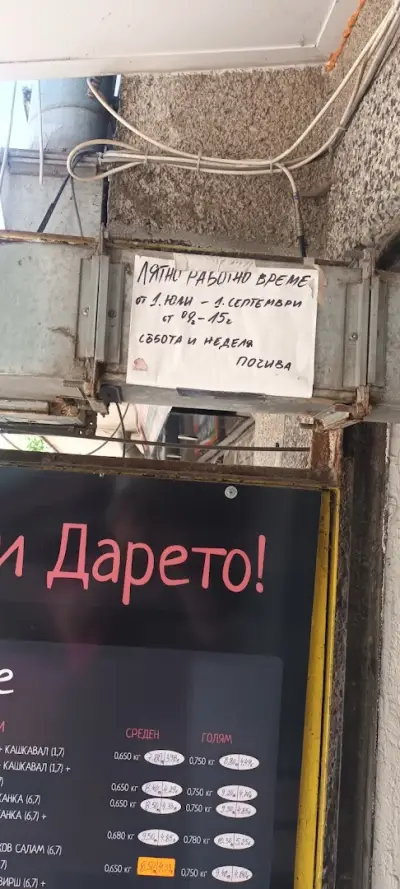 ЛЯТНО РАБОТНО ВРЕМЕ
ОТ 1. ЮЛИ - 1. СЕПТЕМВРИ
ОТ 09ч - 15ч
СЪБОТА И НЕДЕЛЯ
ПОЧИВА
и Дарето!
е
СРЕДЕН ГОЛЯМ
+ КАШКАВАЛ (1,7) 0,650 кг 0,750 кг
+ КАШКАВАЛ (1,7) +
0,650 кг 0,750 кг
АНКА (6,7) 0,650 кг 0,750 кг
АНКА (6,7) +
0,680 кг 0,780 кг
КОВ САЛАМ (6,7)
0,650 кг 0,750 кг
ВИРШ (1,7) +